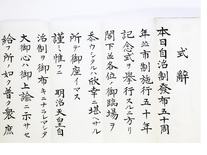 式辭
本日自治制發布五十周
年並市制施行五十年
記念式ヲ擧行スルニ方リ
閣下並各位ノ御臨場ヲ
忝ウシタルハ欣幸ニ堪ヘザル
所デ御座イマス
謹ミ惟フニ 明治天皇自
治制ヲ御布キニナラレマシタ
大御心ハ御上諭ニ示サセ
給フ所ノ如ク普ク衆庶